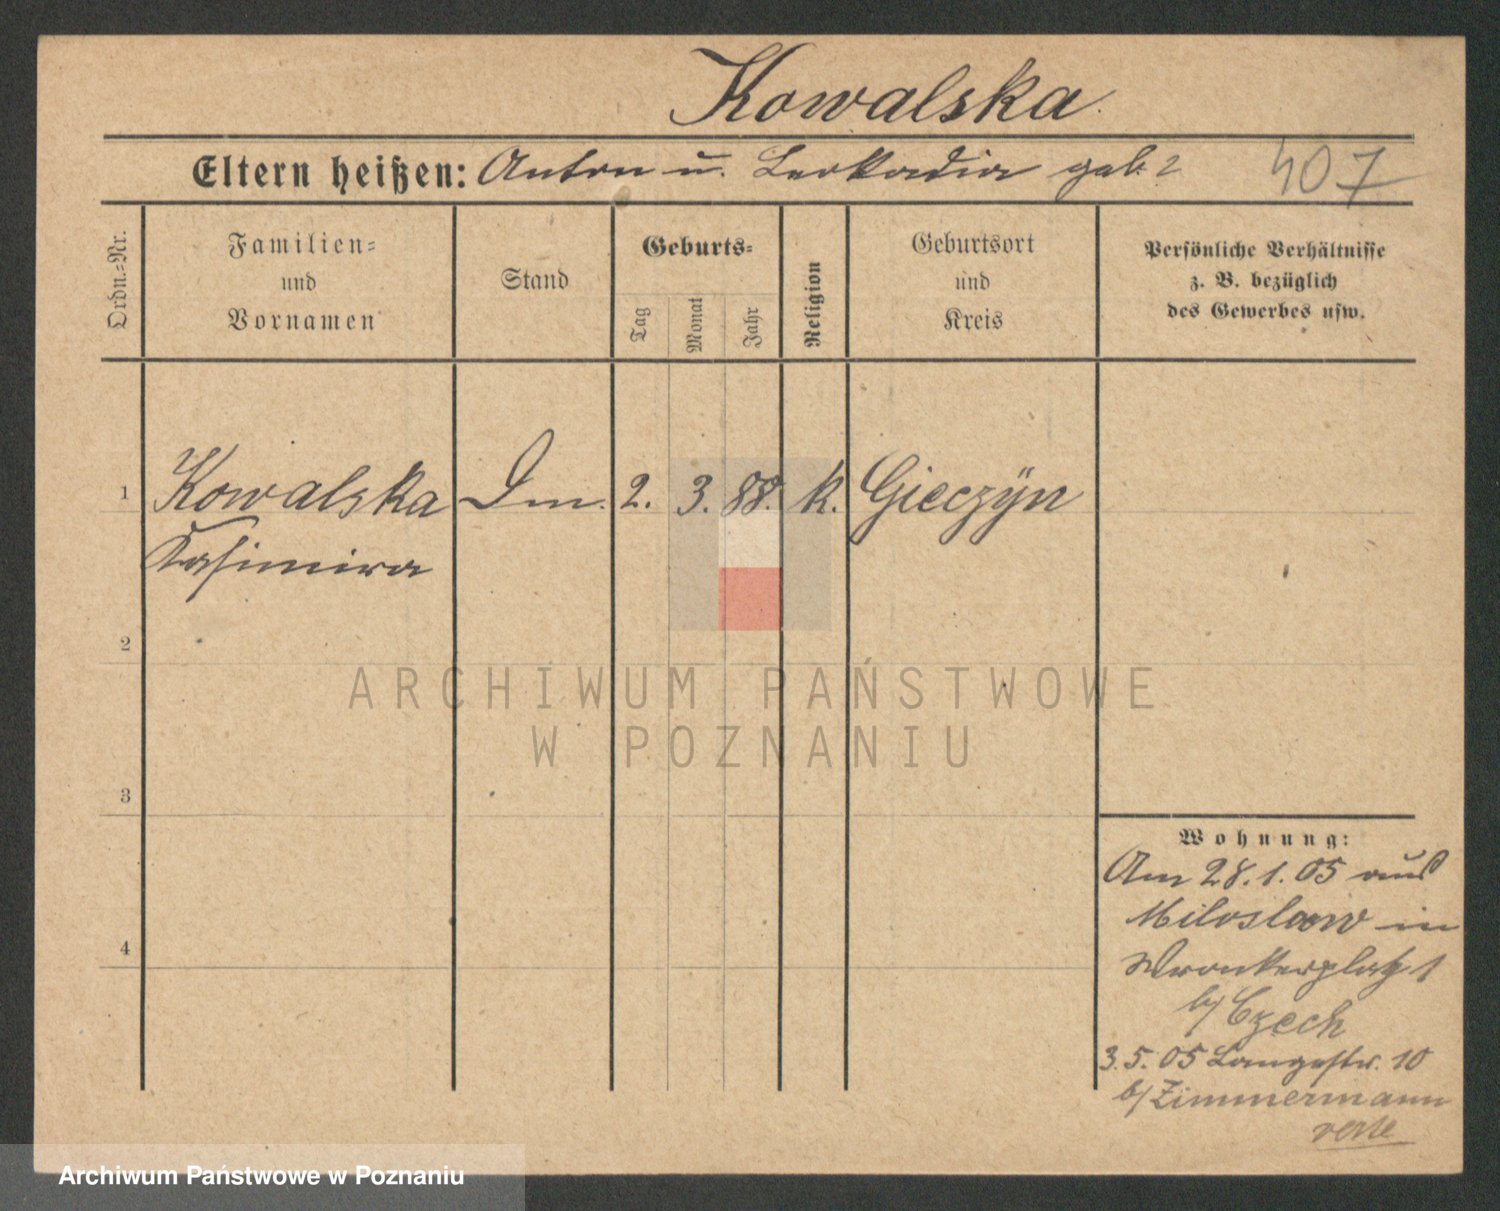 Kowalska
Eltern heißen: Anton u. Leokadia geb. ?
407
Ordn.-Nr.
Familien-
und
Vornamen
Stand
Geburts-
Tag
Monat
Jahr
Religion
Geburtsort
und
Kreis
Persönliche Verhältnisse
z. B. bezüglich
des Gewerbes usw.
1 Kowalska 2. 3. 88. k. Gieczÿn
Kasimira
2
ARCHIWUM PAŃSTWOWE
W POZNANIU
3
Wohnung:
Am 28.1.05 aus
Miloslaw in
4
Wronkerplatz 1
b/ Czech
3.5.05 Langestr. 10
b/ Zimmermann
Archiwum Państwowe w Poznaniu